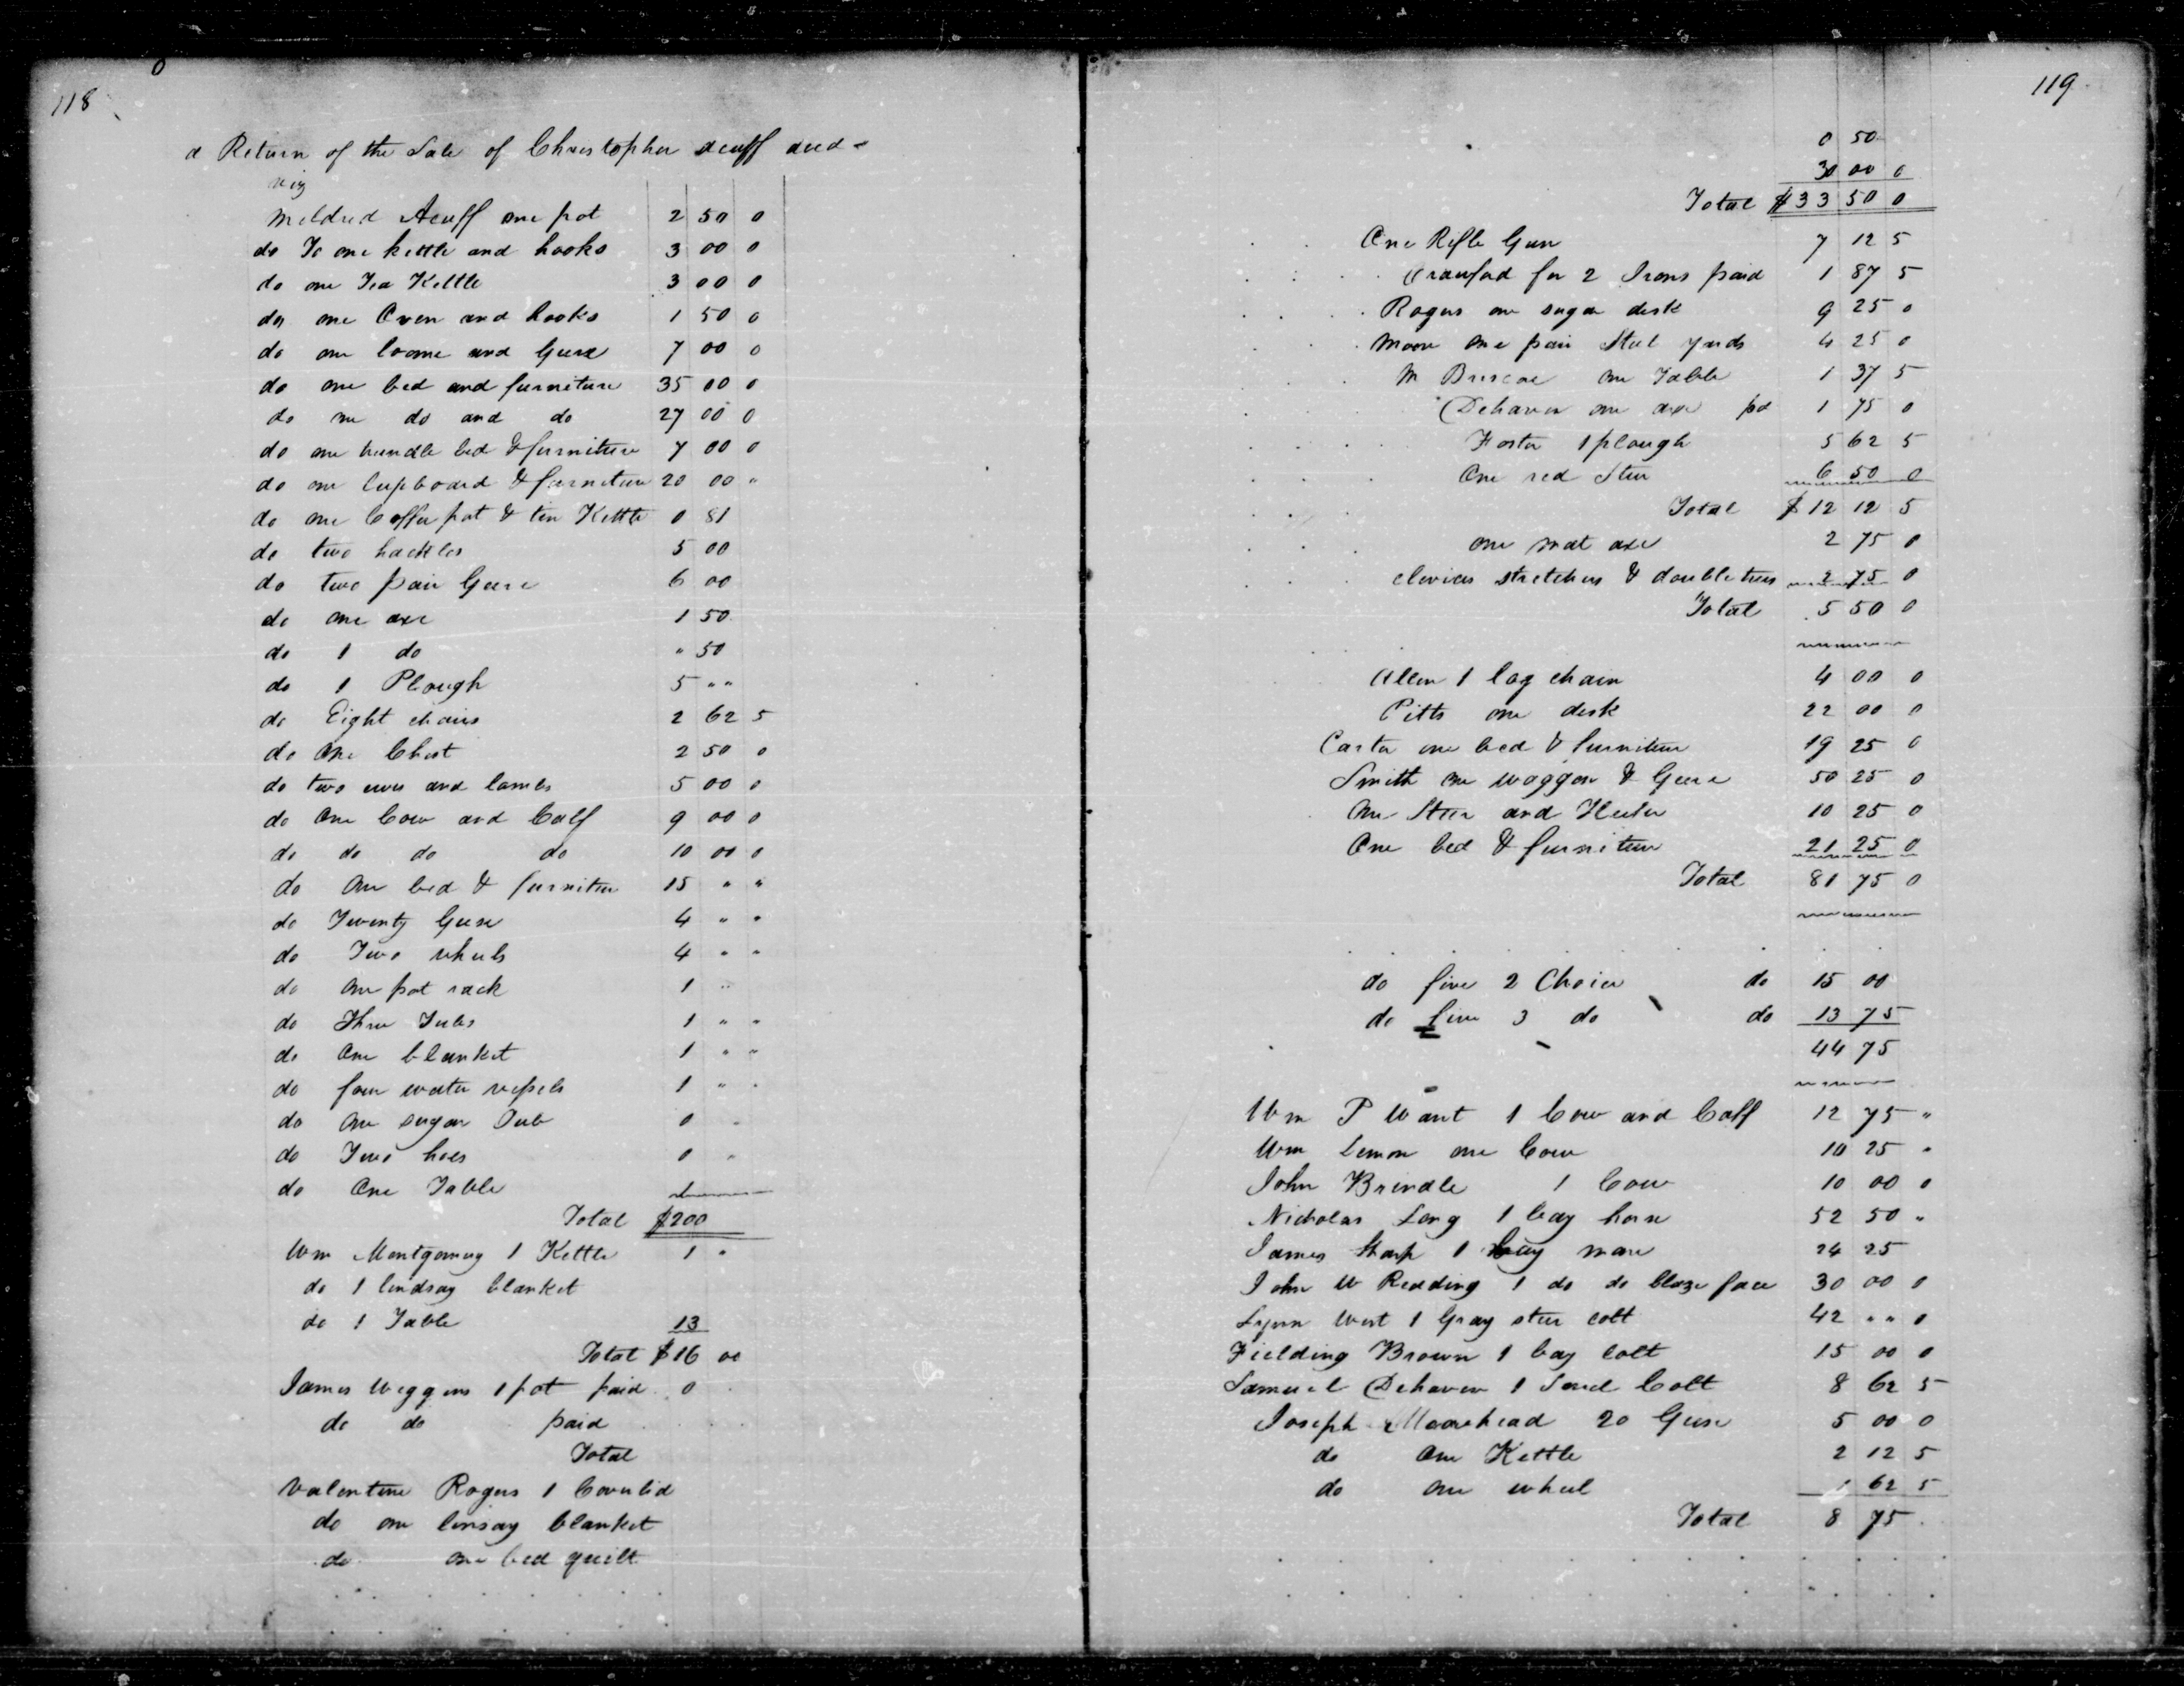 118
a Return of the Sale of Christopher Acuff decd -
viz
Mildred Acuff one pot 2 50 0
do To one kettle and hooks 3 00 0
do one Tea Kettle 3 00 0
do one Oven and hooks 1 50 0
do one loome and Geers 7 00 0
do one bed and furniture 35 00 0
do one do and do 27 00 0
do one trundle bed & furniture 7 00 0
do one Cupboard & furniture 20 00 "
do one Coffee pot & tin Kettle 0 81
do two hackles 5 00
do two pair Geers 6 00
do one axe 1 50
do 1 do " 50
do 1 Plough 5 " "
do Eight chairs 2 62 5
do One Chest 2 50 0
do two ewes and lambs 5 00 0
do One Cow and Calf 9 00 0
do do do do 10 00 0
do One bed & furniture 15 " "
do Twenty Geese 4 " "
do Two wheels 4 " "
do One pot rack 1 "
do Three Tubs 1 " "
do One blanket 1 " "
do four water vessels 1 " "
do One sugar Tub 0
do Two hoes 0 "
do One Table 1
Total $200
Wm Montgomery 1 Kettle 1 "
do 1 lindsay blanket
do 1 Table 13
Total $16 00
James Weggins 1 pot paid 0
do do paid
Total
Valentine Rogers 1 Coverlid
do one linsay blanket
do one bed quilt
119
0 50
30 00 0
Total $33 50 0
One Rifle Gun 7 12 5
Crawford for 2 Irons paid 1 87 5
Rogers one sugar desk 9 25 0
Moore one pair Steel yards 4 25 0
M Briscoe one Table 1 37 5
Dehaven one axe pd 1 75 0
Foster 1 plough 5 62 5
One red Steer 6 50 0
Total $12 12 5
one mat axe 2 75 0
clevices stretchers & double trees 2 75 0
Total 5 50 0
Allen 1 log chain 4 00 0
Pitts one desk 22 00 0
Carter one bed & furniture 19 25 0
Smith one waggon & Geers 50 25 0
One Steer and Heifer 10 25 0
One bed & furniture 21 25 0
Total 81 75 0
do five 2 Choice do 15 00
do five 3 do do 13 75
44 75
Wm P Want 1 Cow and Calf 12 75 "
Wm Lemon one Cow 10 25 "
John Brindle 1 Cow 10 00 0
Nicholas Long 1 bay horse 52 50 "
James Sharp 1 bay mare 24 25
John W Redding 1 do do blaze face 30 00 0
Lynn West 1 Gray steer colt 42 " " 0
Fielding Brown 1 bay colt 15 00 0
Samuel Dehaven 1 Sorrel Colt 8 62 5
Joseph Moorehead 20 Geese 5 00 0
do One Kettle 2 12 5
do one wheel 1 62 5
Total 8 75